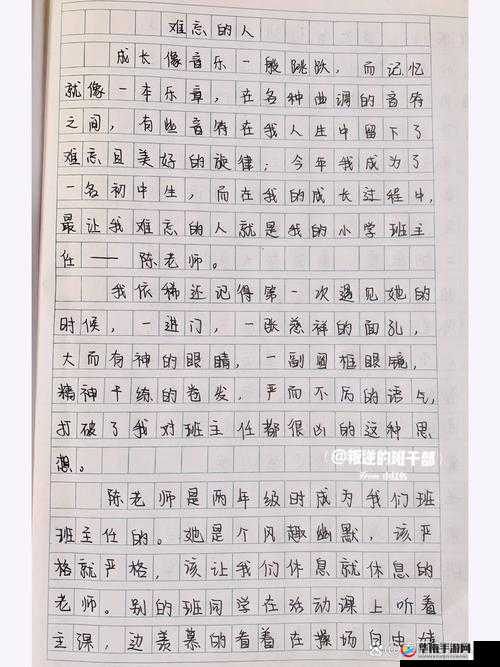 难忘的人
成长像音乐一般跳跃，而记忆
就像一本乐章，在各种曲调的音符
之间，有些音符在我人生中留下了
难忘且美好的旋律；今年我成为了
一名初中生，而在我的成长过程中，
最让我难忘的人就是我的小学班主
任——陈老师。
我依稀还记得第一次遇见她的
时候，一进门，一张慈祥的面孔，
大而有神的眼睛，一副圆框眼镜，
精神干练的卷发，严而不厉的语气，
打破了我对班主任都很凶的这种思
想。
@叛逆的班干部
陈老师是两年级时成为我们班
班主任的。她是个风趣幽默，该严
格就严格，该让我们休息就休息的
老师。别的班同学在活动课上听着
主课，边羡慕的看着在操场自由